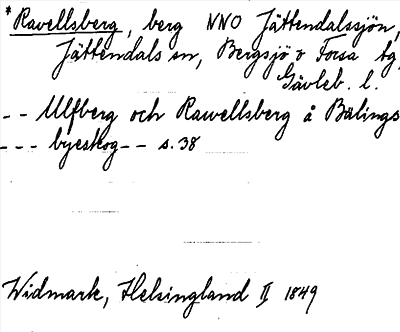 *Ravellsberg, berg NNO Jättendalssjön,
Jättendals sn, Bergsjö o Forsa tg,
Gävleb. l.
-- Ulfberg och Rawellsberg å Bälings
--- byeskog -- s. 38
Widmark, Helsingland II 1849